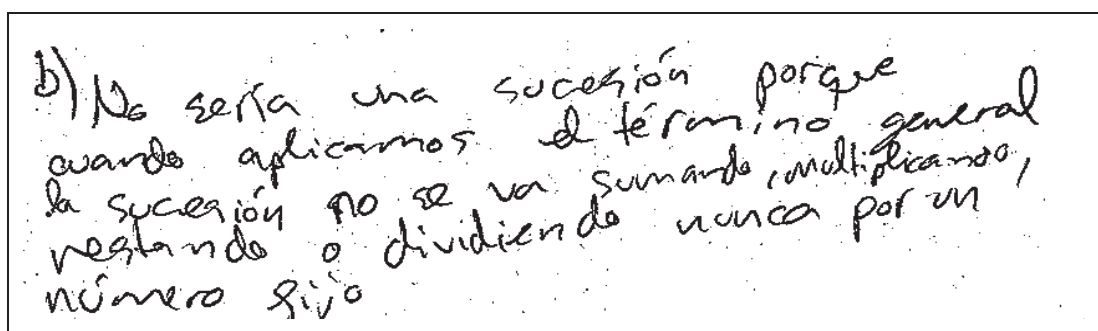 b) No sería una sucesión porque
cuando aplicamos el término general
la sucesión no se va sumando, multiplicando,
restando o dividiendo nunca por un
número fijo